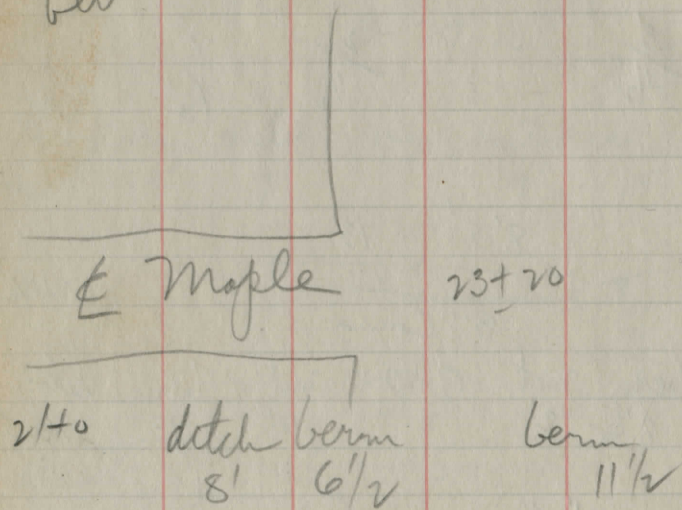 ℄ Maple 23+20
21+0 ditch berm berm
8' 6 1/2 11 1/2